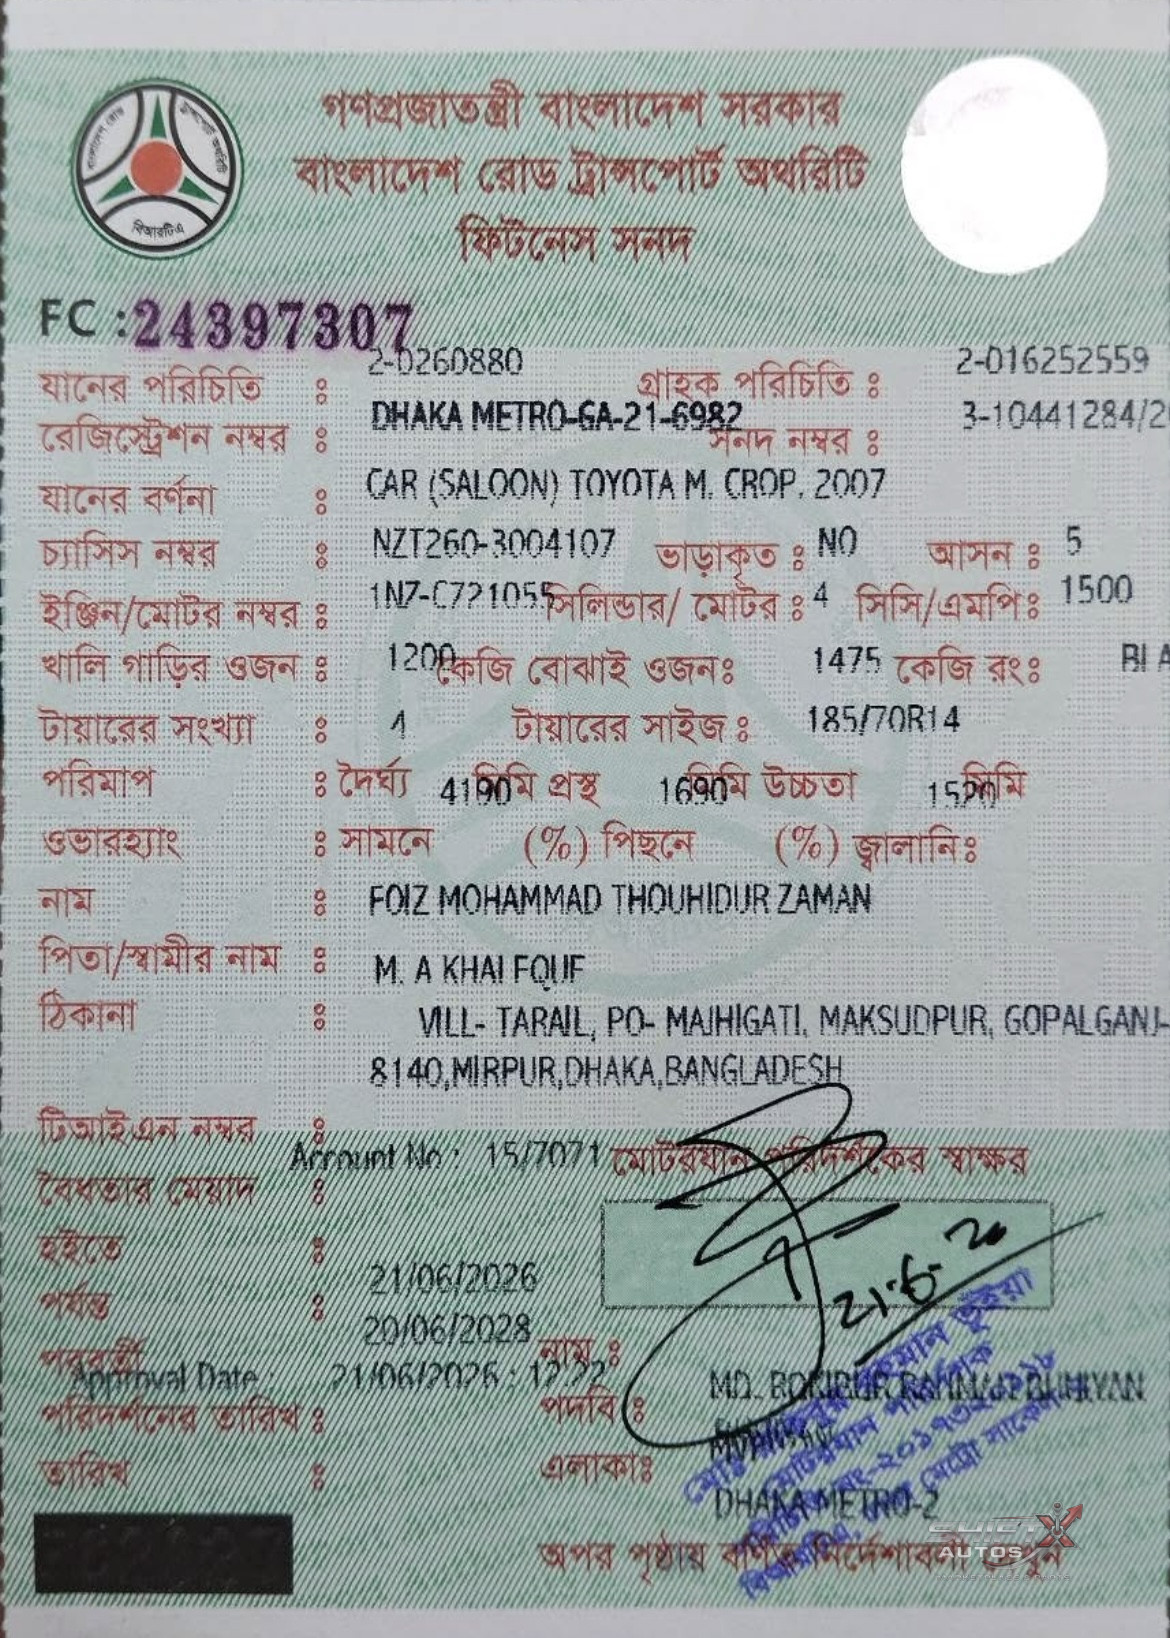 গণপ্রজাতন্ত্রী বাংলাদেশ সরকার
বাংলাদেশ রোড ট্রান্সপোর্ট অথরিটি
ফিটনেস সনদ
বিআরটিএ
FC : 24397307
যানের পরিচিতি : 2-0260880 গ্রাহক পরিচিতি : 2-016252559
রেজিস্ট্রেশন নম্বর : DHAKA METRO-GA-21-6982 সনদ নম্বর : 3-10441284/2
যানের বর্ণনা : CAR (SALOON) TOYOTA M. CROP. 2007
চ্যাসিস নম্বর : NZT260-3004107 ভাড়াকৃত : NO আসন : 5
ইঞ্জিন/মোটর নম্বর : 1NZ-C721055 সিলিন্ডার/ মোটর : 4 সিসি/এমপি: 1500
খালি গাড়ির ওজন : 1200 কেজি বোঝাই ওজন: 1475 কেজি রং:
টায়ারের সংখ্যা : 4 টায়ারের সাইজ : 185/70R14
পরিমাপ : দৈর্ঘ্য 4190 মিমি প্রস্থ 1690 মিমি উচ্চতা 1520 মিমি
ওভারহ্যাং : সামনে (%) পিছনে (%) জ্বালানি:
নাম : FOIZ MOHAMMAD THOUHIDUR ZAMAN
পিতা/স্বামীর নাম : M. A
ঠিকানা : VILL- TARAIL, PO- MAJHIGATI, MAKSUDPUR, GOPALGANJ-
8140,MIRPUR,DHAKA,BANGLADESH
টিআইএন নম্বর :
Account No : 15/7071 মোটরযান পরিদর্শকের স্বাক্ষর
বৈধতার মেয়াদ :
হইতে : 21/06/2026
21-6-20
পর্যন্ত : 20/06/2028
পরবর্তী নাম :
Approval Date : 21/06/2026 : 12:22 MD. ROKIBUR RAHMAN BHUIYAN
পরিদর্শনের তারিখ : পদবি :
তারিখ : এলাকাঃ DHAKA METRO-2
অপর পৃষ্ঠায় বর্ণিত নির্দেশাবলী দেখুন
AUTOS